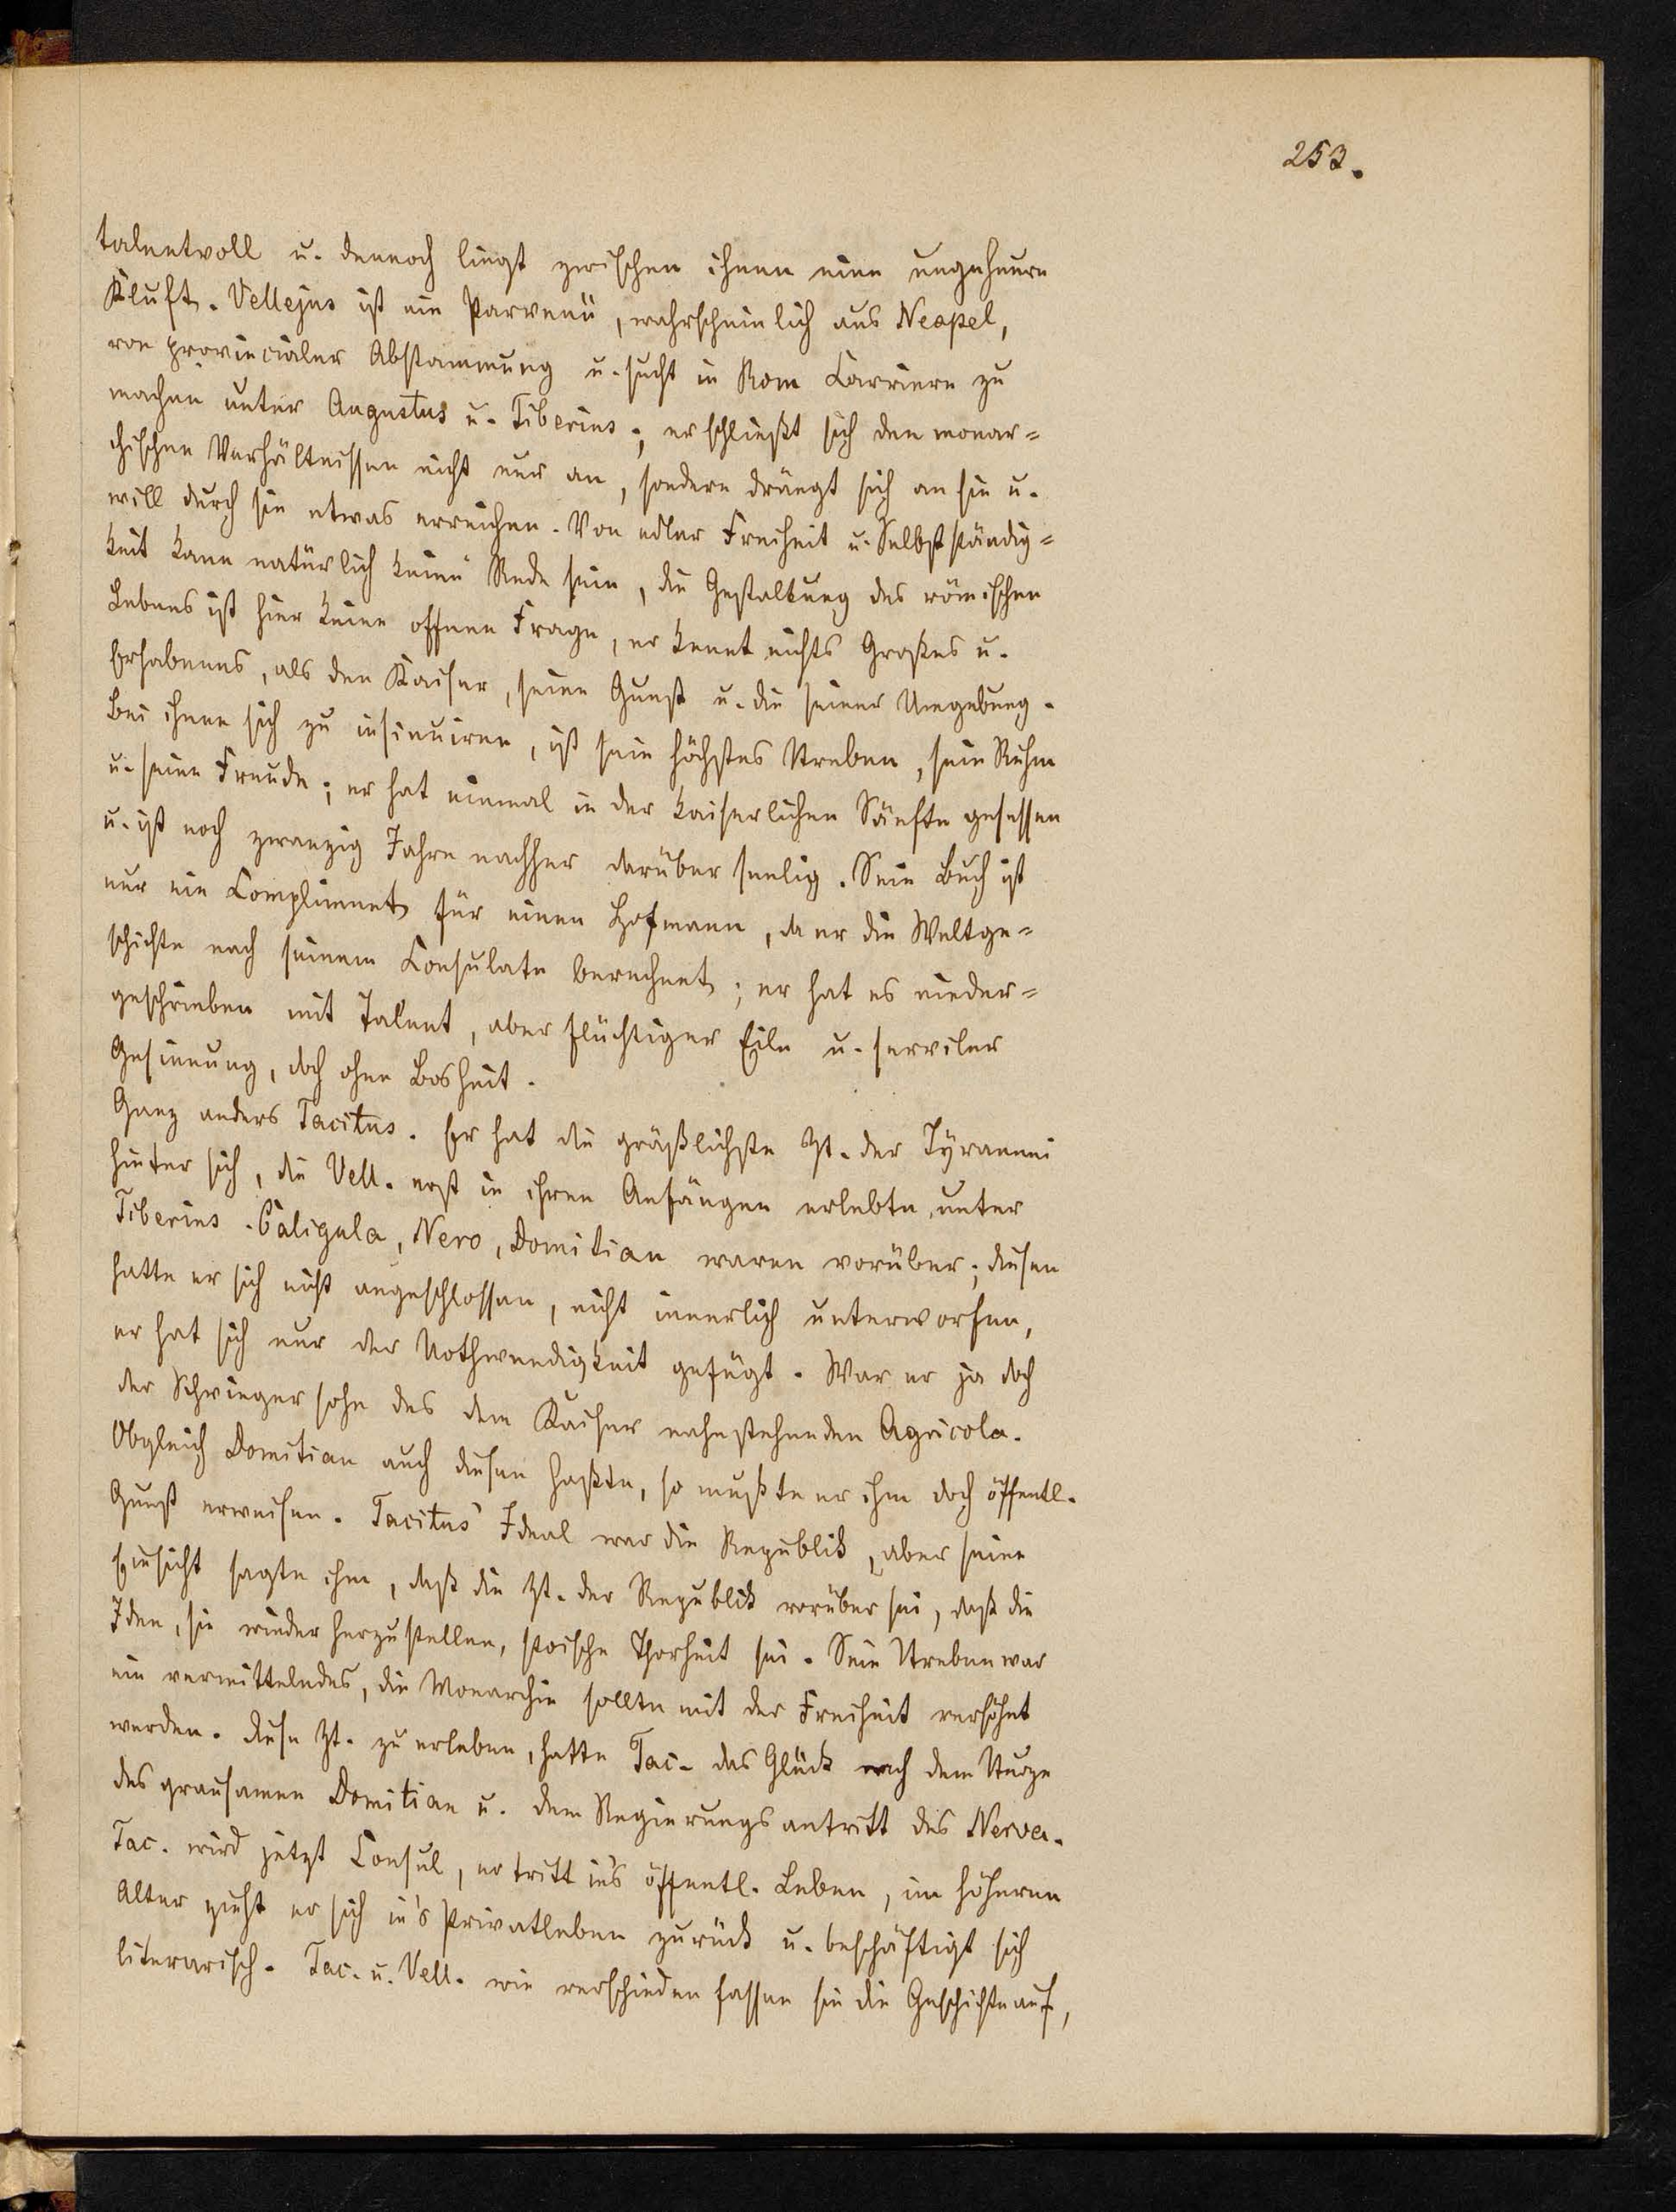 253.
talentvoll u. dennoch liegt zwischen ihnen eine ungeheure
Kluft. Vellejus ist ein Parvenü, wahrscheinlich aus Neapel,
von provincialer Abstammung u. sucht in Rom Carriere zu
machen unter Augustus u. Tiberius; er schließt sich den monar=
chischen Verhältnissen nicht nur an, sondern drängt sich an sie u.
will durch sie etwas erreichen. Von edler Freiheit u. Selbstständig=
keit kann natürlich keine Rede sein, die Gestaltung des römischen
Lebens ist hier keine offene Frage, er kennt nichts Großes u.
Erhabenes, als den Kaiser, seine Gunst u. die seiner Umgebung.
Bei ihnen sich zu insinuiren, ist sein höchstes Streben, sein Ruhm
u. seine Freude; er hat einmal in der kaiserlichen Sänfte gesessen
u. ist noch zwanzig Jahre nachher darüber seelig. Sein Buch ist
nur ein Compliment für einen Hofmann, da er die Weltge=
schichte nach seinem Consulate berechnet; er hat es nieder=
geschrieben mit Talent, aber flüchtiger Eile u. serviler
Gesinnung, doch ohne Bosheit.
Ganz anders Tacitus. Er hat die gräßlichste Zt. der Tyrannei
hinter sich, die Vell. erst in ihren Anfängen erlebte, unter
Tiberius. Caligula, Nero, Domitian waren vorüber; diesen
hatte er sich nicht angeschlossen, nicht innerlich unterworfen,
er hat sich nur der Nothwendigkeit gefügt. War er ja doch
der Schwiegersohn des dem Kaiser nahestehenden Agricola.
Obgleich Domitian auch diesen haßte, so mußte er ihm doch öffentl.
Gunst erweisen. Tacitus' Ideal war die Republik, aber seine
Einsicht sagte ihm, daß die Zt. der Republik vorüber sei, daß die
Idee, sie wieder herzustellen, stoische Thorheit sei. Sein Streben war
ein vermittelndes, die Monarchie sollte mit der Freiheit versöhnt
werden. Diese Zt. zu erleben, hatte Tac. das Glück nach dem Sturze
des grausamen Domitian u. dem Regierungsantritt des Nerva.
Tac. wird jetzt Consul, er tritt in's öffentl. Leben, im höheren
Alter zieht er sich in's Privatleben zurück u. beschäftigt sich
literarisch. Tac. u. Vell. wie verschieden fassen sie die Geschichte auf,